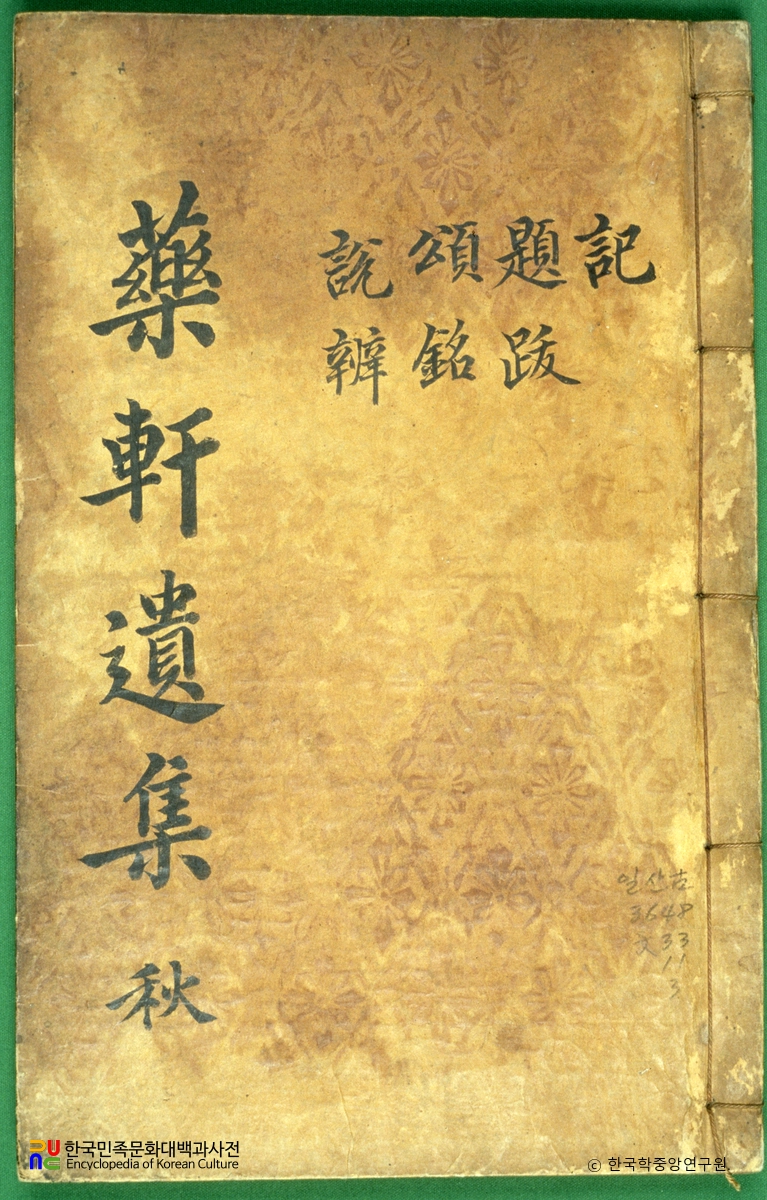 記
題跋
頌銘
說辨
藥軒遺集 秋
일산古
3648
文33
11
3
한국민족문화대백과사전
Encyclopedia of Korean Culture
© 한국학중앙연구원